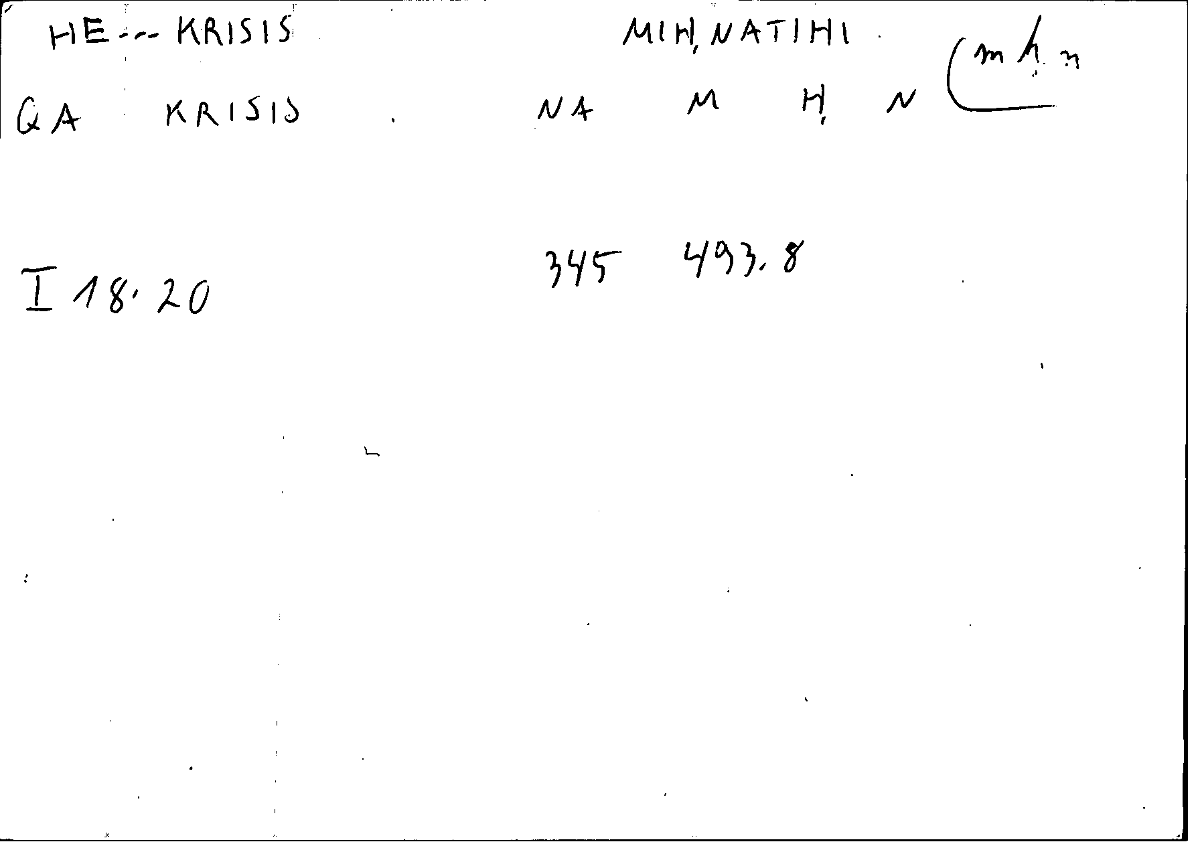 HE --- KRISIS MIḤNATIHI (mḥn
QA KRISIS NA M Ḥ N
I 18.20 345 493.8